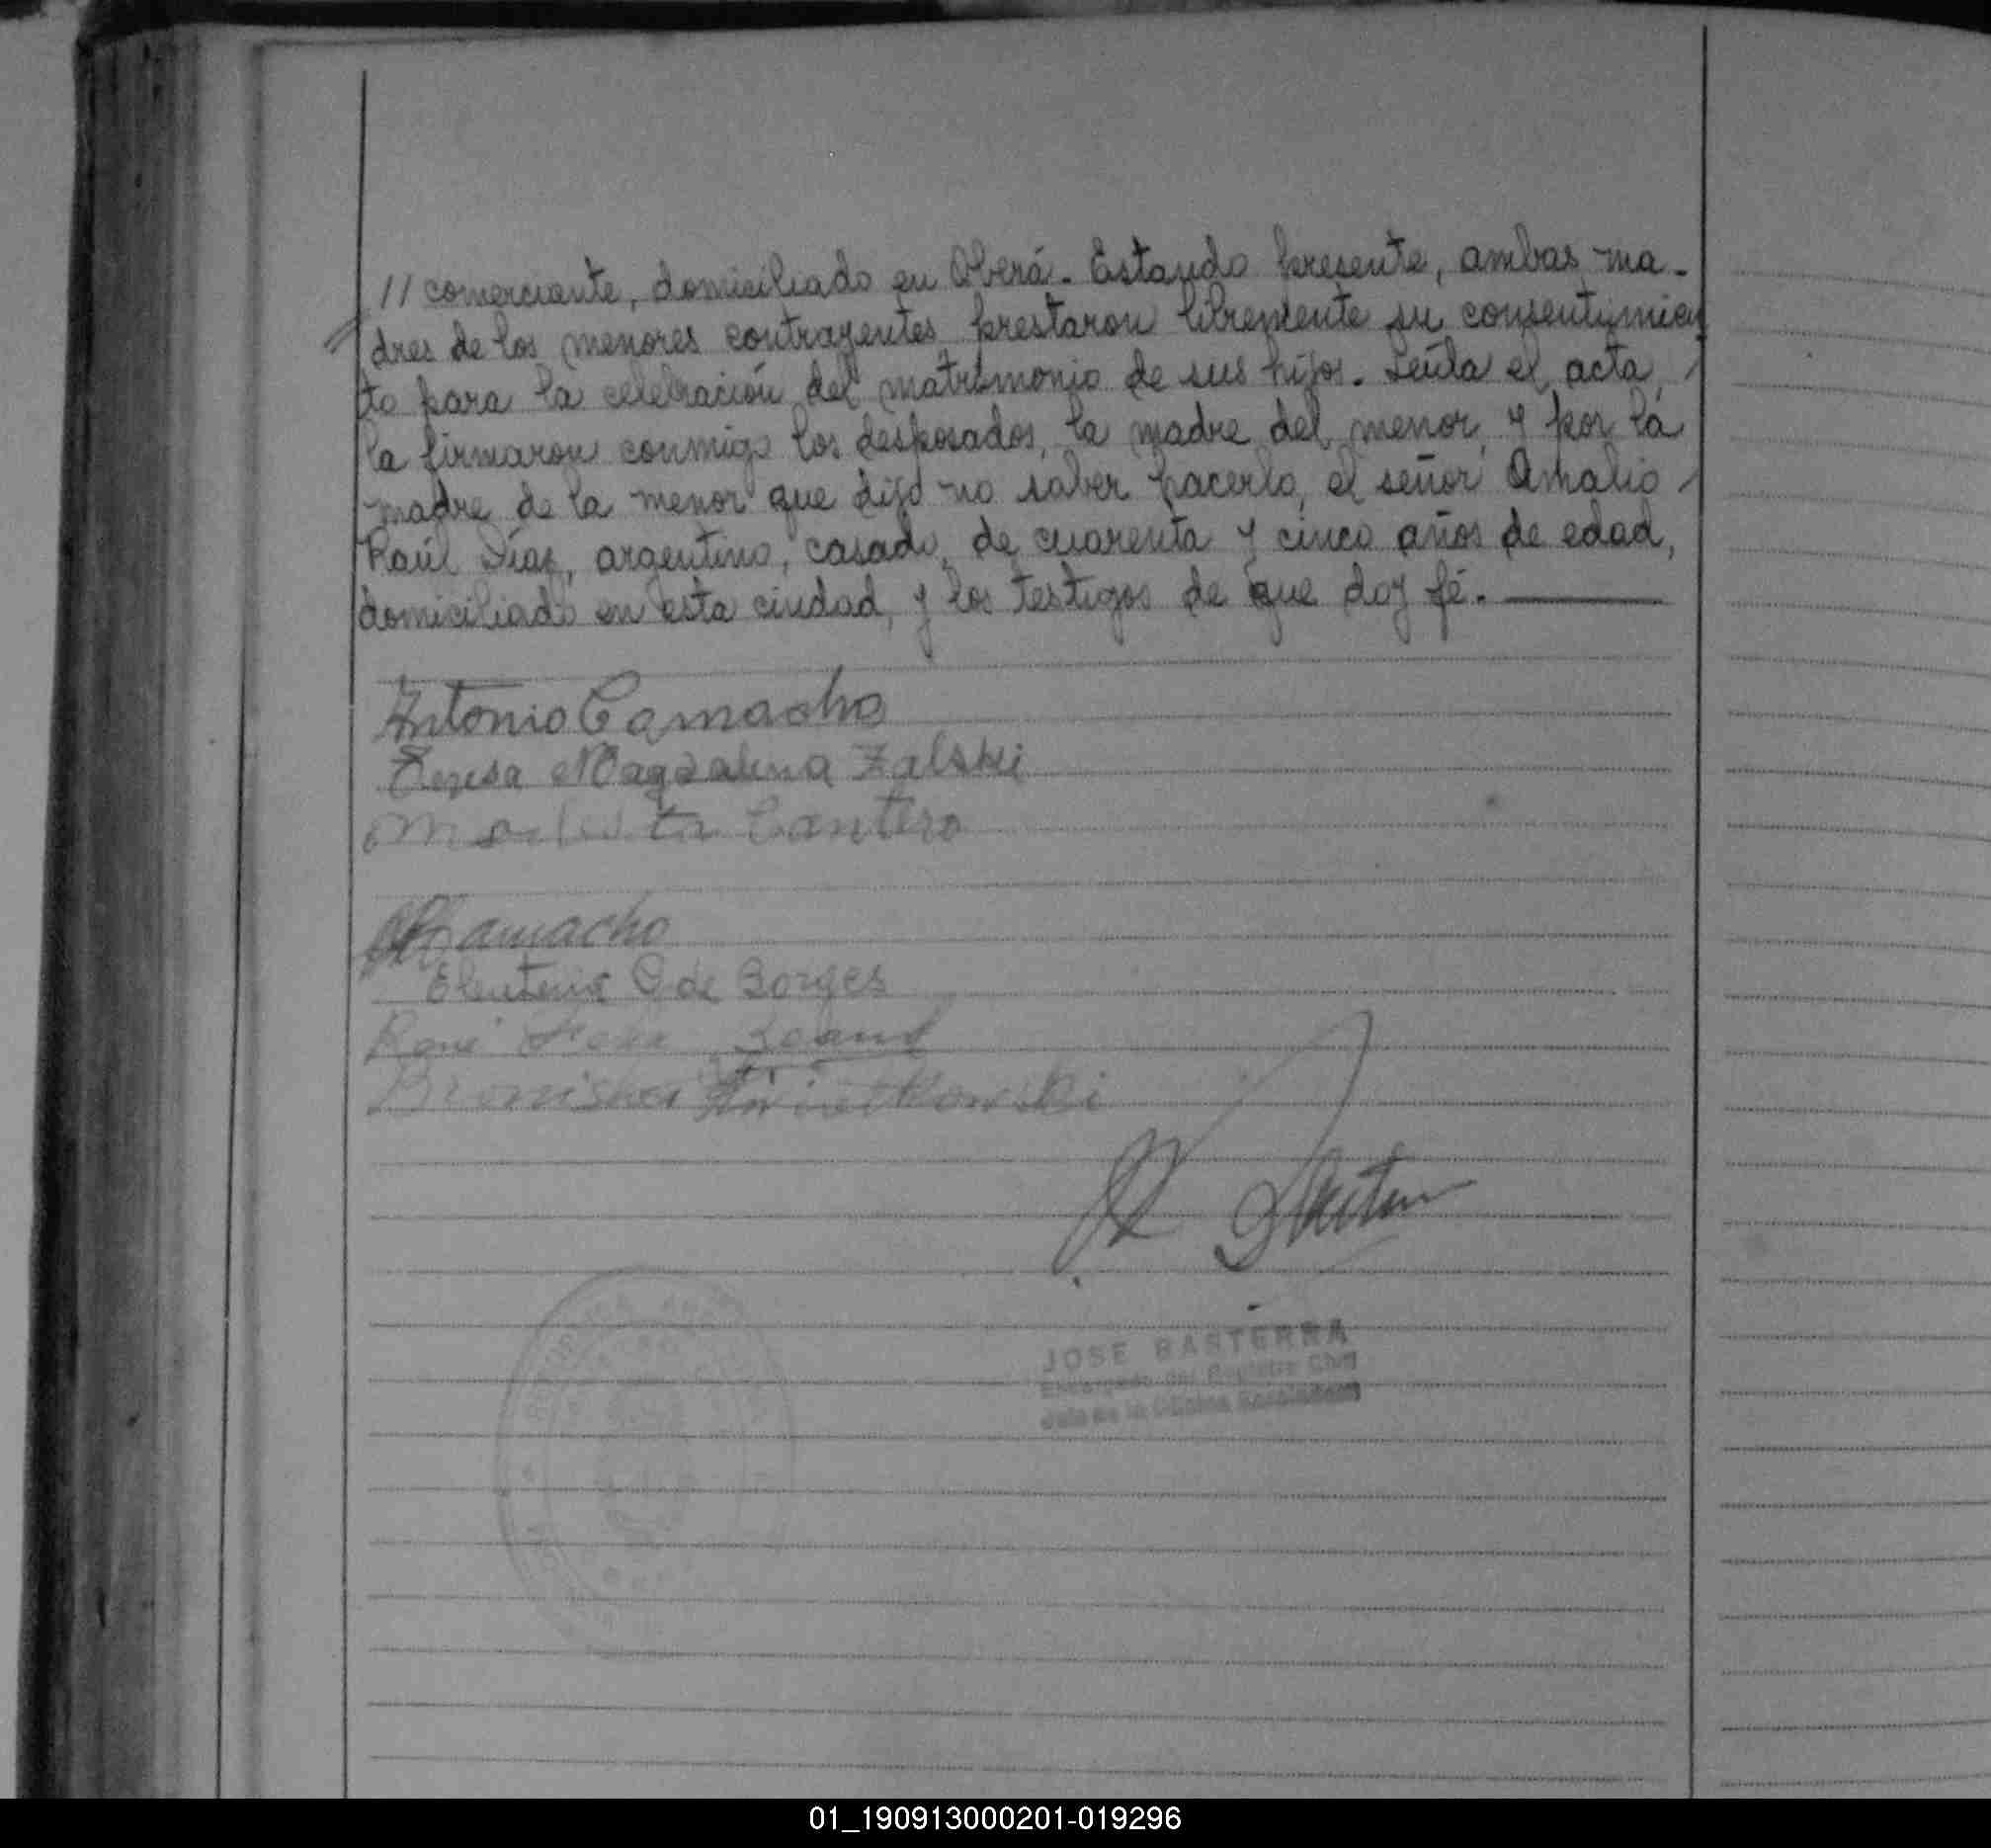 // comerciante, domiciliado en Oberá. Estando presente, ambas ma-
dres de los menores contrayentes prestaron libremente su consentimien
to para la celebración del matrimonio de sus hijos. Leída el acta,
la firmaron conmigo los desposados, la madre del menor, y por la
madre de la menor que dijo no saber hacerlo, el señor Amalio
Raúl Díaz, argentino, casado, de cuarenta y cinco años de edad,
domiciliado en esta ciudad, y los testigos de que doy fé.
Antonio Camacho
Teresa Magdalena Zalski
Cantero
Camacho
Eleuteria C de Borges
René
JOSE BASTERRA
Encargado del Registro Civil
Jefe de la Oficina
01_190913000201-019296